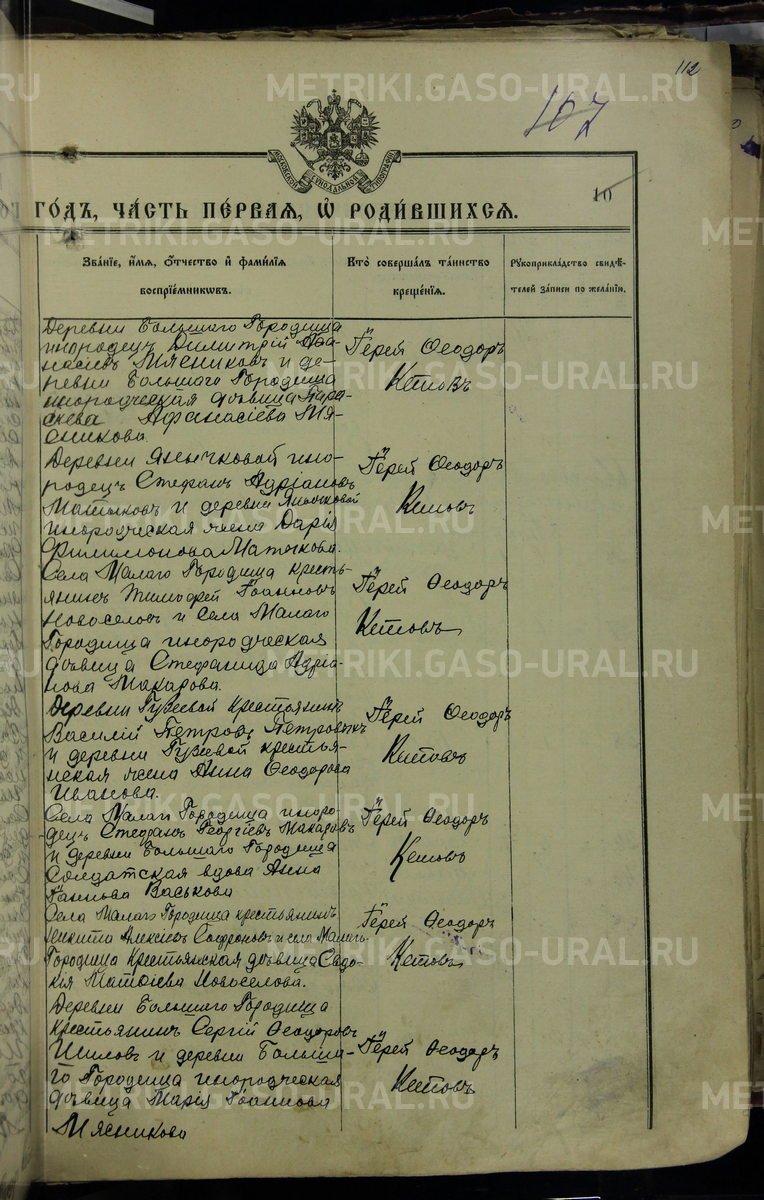 112
METRIKI.GASO-URAL.RU
107
10
МОСКОВСКОЙ СѴНОДАЛЬНОЙ ТИПОГРАФІИ
ГО́ДЪ, ЧА́СТЬ ПЕ́РВАЯ, Ѡ҆ РОДИ́ВШИХСѦ.
Зва́нїе, и҆́мѧ, ѻ҆́тчество и҆ фамі́лїѧ
воспрїе́мникѡвъ.
Кто̀ соверша́лъ та́инство
креще́нїѧ.
Рꙋкоприкла́дство свидѣ́-
телей за́писи по жела́нїю.
Деревни Большаго Городища
инородецъ Димитрій Афа-
насіевъ Мясниковъ и де-
ревни Большаго Городища
инородческая дѣвица Пара-
скева Афанасіева Мя-
сникова.
Іерей Ѳеодоръ
Кетовъ
Деревни Янычковой ино-
родецъ Стефанъ Адріановъ
Матыковъ и деревни Янычковой
инородческая жена Дарія
Филимонова Матыкова.
Іерей Ѳеодоръ
Кетовъ
Села Малаго Городища кресть-
янинъ Тимофей Іоанновъ
Новоселовъ и Села Малаго
Городища инородческая
дѣвица Стефанида Адріа-
нова Макарова.
Іерей Ѳеодоръ
Кетовъ
Деревни Гузеевой крестьянинъ
Василій Петровъ Петровыхъ
и деревни Гузеевой крестья-
нская жена Анна Ѳеодорова
Иванова.
Іерей Ѳеодоръ
Кетовъ
Села Малаго Городища иноро-
децъ Стефанъ Георгіевъ Макаровъ
и деревни Большаго Городища
солдатская вдова Анна
Іаннова Васькова
Іерей Ѳеодоръ
Кетовъ
Села Малаго Городища крестьянинъ
Никита Алексіевъ Софроновъ и села Малаго
Городища Крестьянская дѣвица Евдо-
кія Матѳіева Новоселова.
Іерей Ѳеодоръ
Кетовъ
Деревни Большаго Городища
крестьянинъ Сергій Ѳеодоровъ
Шиловъ и деревни Больша-
го Городища инородческая
дѣвица Марія Іоаннова
Мясникова
Іерей Ѳеодоръ
Кетовъ